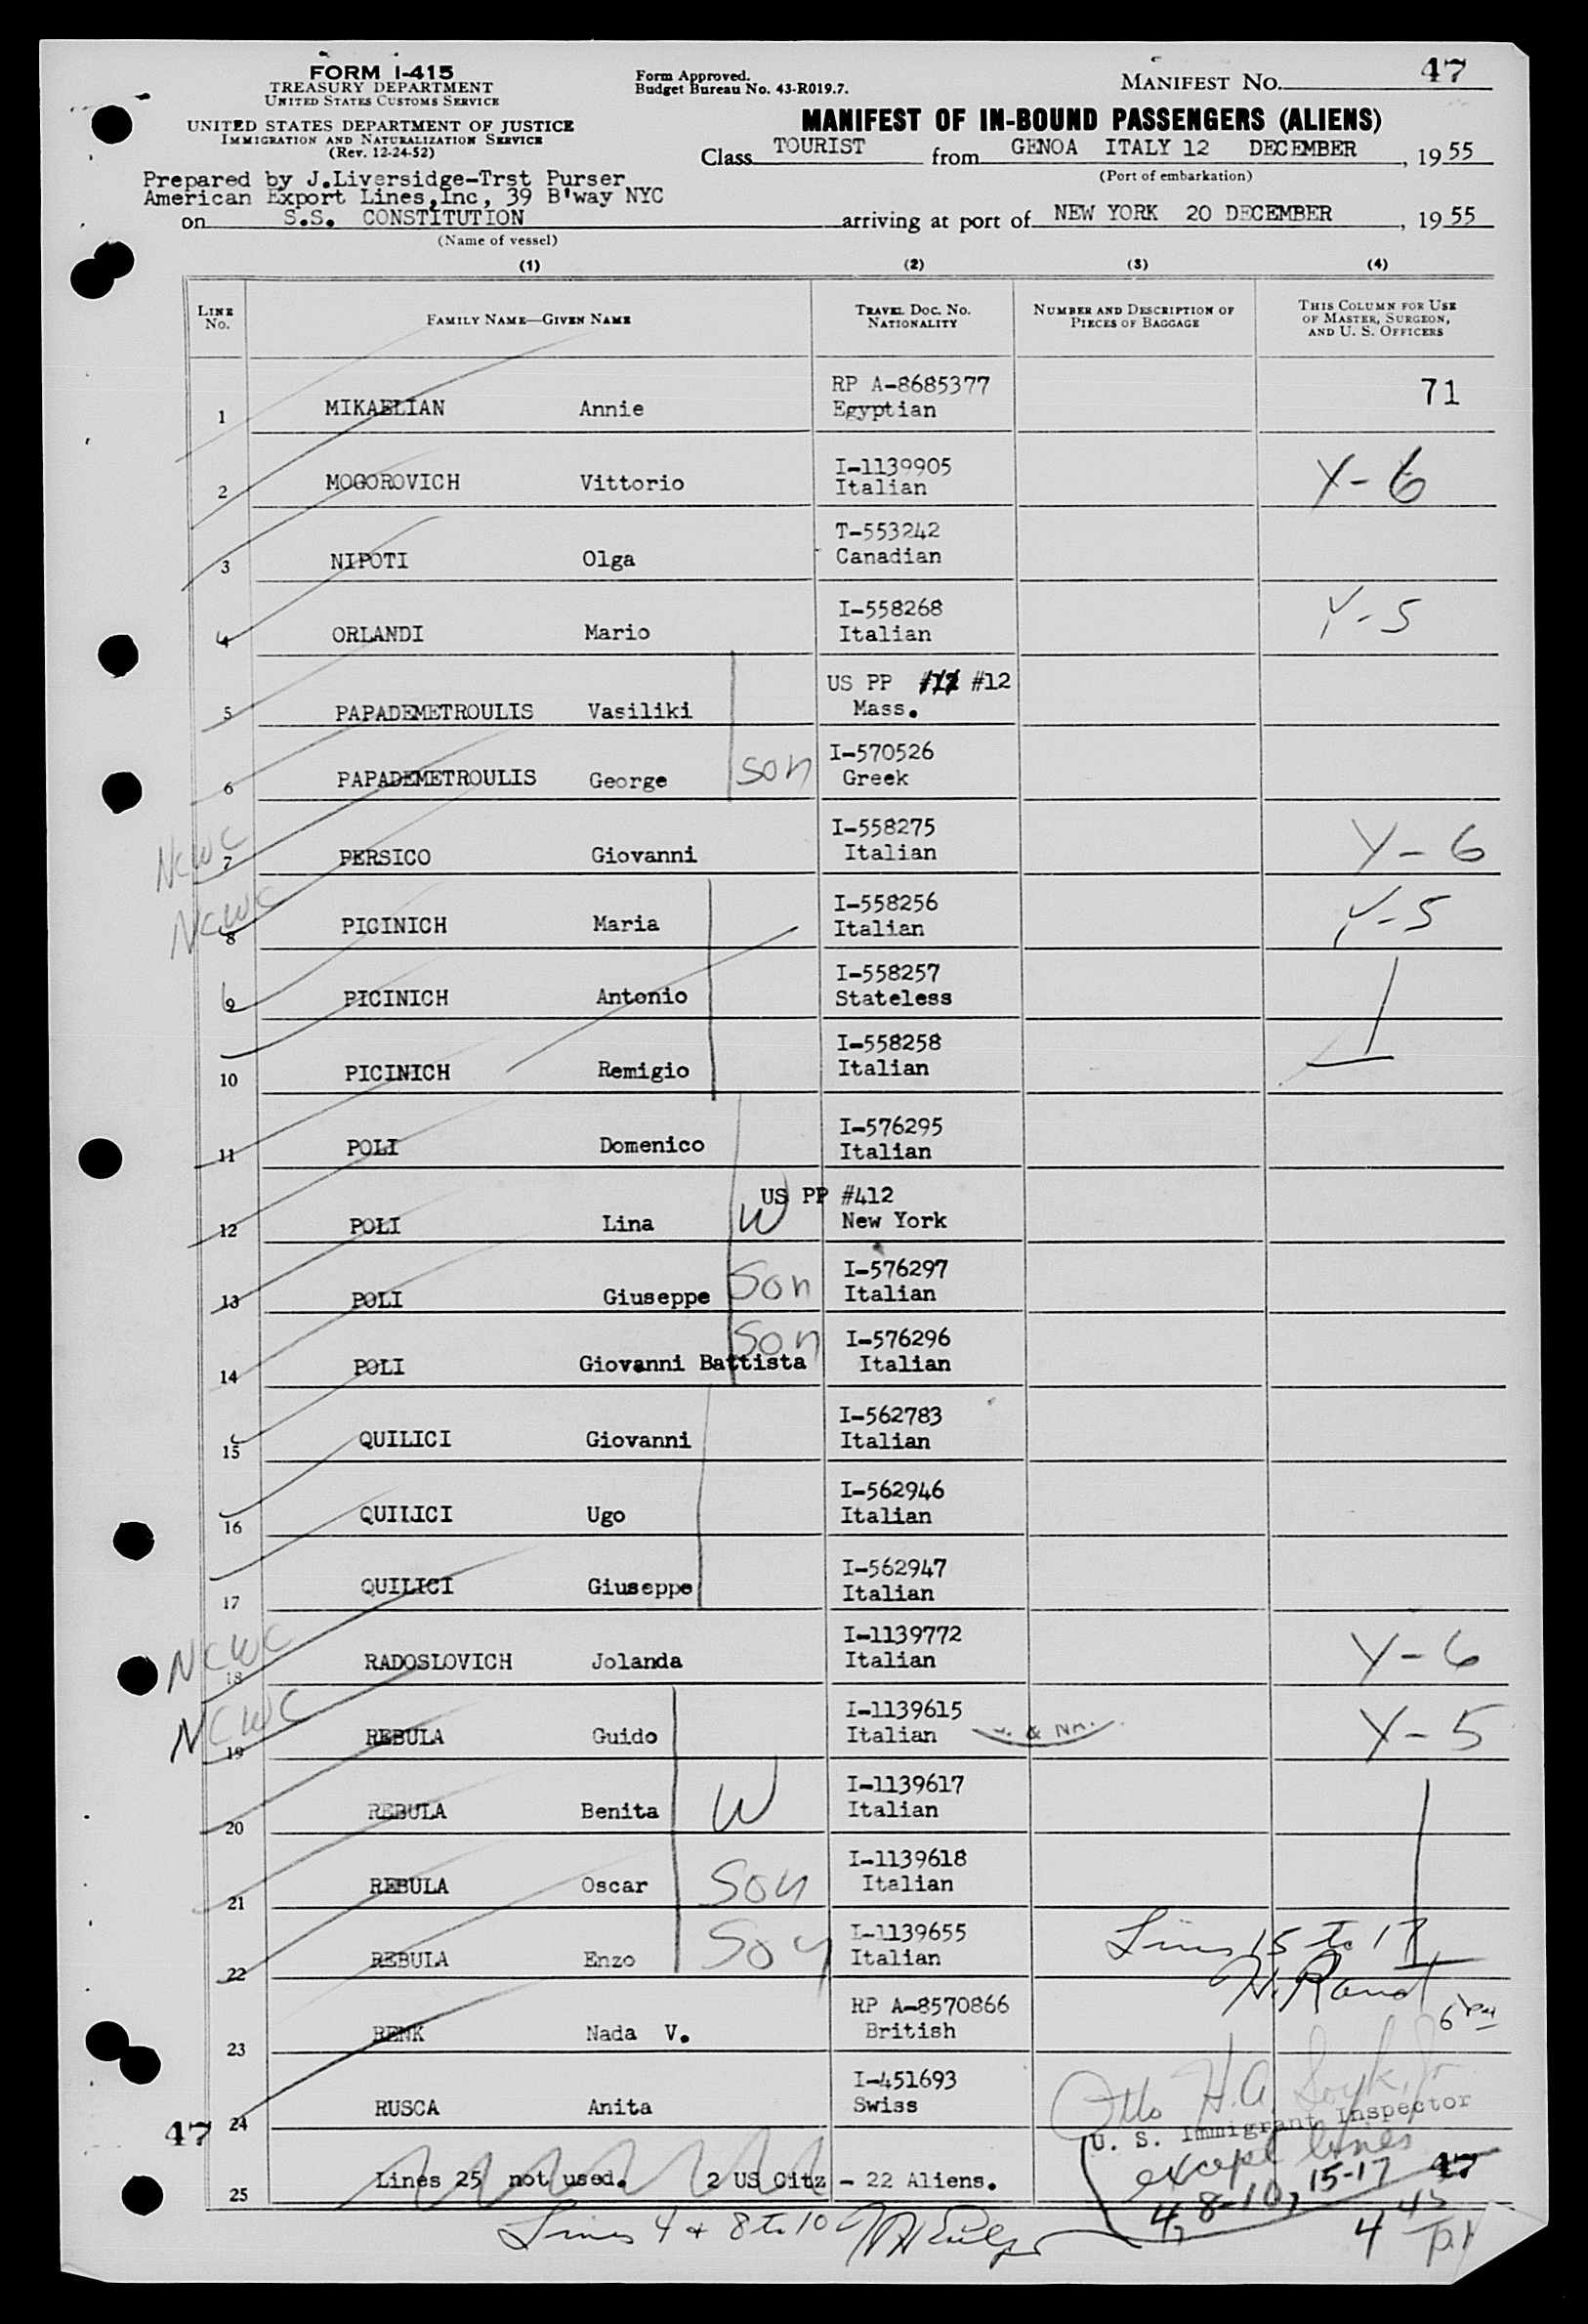 FORM I-415
TREASURY DEPARTMENT
UNITED STATES CUSTOMS SERVICE
UNITED STATES DEPARTMENT OF JUSTICE
IMMIGRATION AND NATURALIZATION SERVICE
(Rev. 12-24-52)
Form Approved.
Budget Bureau No. 43-R019.7.
MANIFEST NO. 47
MANIFEST OF IN-BOUND PASSENGERS (ALIENS)
Class TOURIST from GENOA ITALY 12 DECEMBER, 19 55
(Port of embarkation)
Prepared by J.Liversidge-Trst Purser
American Export Lines,Inc, 39 B'way NYC
on S.S. CONSTITUTION arriving at port of NEW YORK 20 DECEMBER, 19 55
(Name of vessel)
(1) (2) (3) (4)
LINE No. FAMILY NAME—GIVEN NAME TRAVEL DOC. NO. NATIONALITY NUMBER AND DESCRIPTION OF PIECES OF BAGGAGE THIS COLUMN FOR USE OF MASTER, SURGEON, AND U. S. OFFICERS
1 MIKAELIAN Annie RP A-8685377 Egyptian 71
2 MOGOROVICH Vittorio I-1139905 Italian Y-6
3 NIPOTI Olga T-553242 Canadian
4 ORLANDI Mario I-558268 Italian Y-5
5 PAPADEMETROULIS Vasiliki US PP #12 Mass.
6 PAPADEMETROULIS George son I-570526 Greek
NCWC 7 PERSICO Giovanni I-558275 Italian Y-6
NCWC 8 PICINICH Maria I-558256 Italian Y-5
9 PICINICH Antonio I-558257 Stateless
10 PICINICH Remigio I-558258 Italian
11 POLI Domenico I-576295 Italian
12 POLI Lina W US PP #412 New York
13 POLI Giuseppe Son I-576297 Italian
14 POLI Giovanni Battista Son I-576296 Italian
15 QUILICI Giovanni I-562783 Italian
16 QUILICI Ugo I-562946 Italian
17 QUILICI Giuseppe I-562947 Italian
NCWC 18 RADOSLOVICH Jolanda I-1139772 Italian Y-6
NCWC 19 REBULA Guido I-1139615 Italian Y-5
20 REBULA Benita W I-1139617 Italian
21 REBULA Oscar Son I-1139618 Italian
22 REBULA Enzo Son I-1139655 Italian
Lines 15 to 17
H. Rand
23 RENK Nada V. RP A-8570866 British
24 RUSCA Anita I-451693 Swiss
Otto H.A.
U. S. Immigrant Inspector
except lines
4, 8-10, 15-17
47 47
25 Lines 25 not used. 2 US Citz - 22 Aliens.
Lines 4 & 8 to 10
4